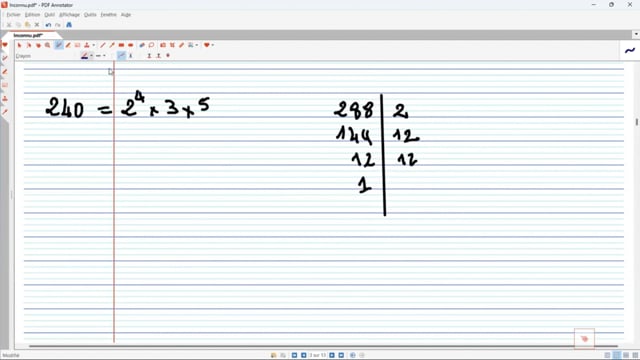 Inconnu.pdf* - PDF Annotator
Fichier Edition Outil Affichage Outils Fenêtre Aide
Inconnu.pdf*
Crayon
240 = 2⁴ × 3 × 5
288 | 2
144 | 12
12 | 12
1 |
Modifié
3 sur 13